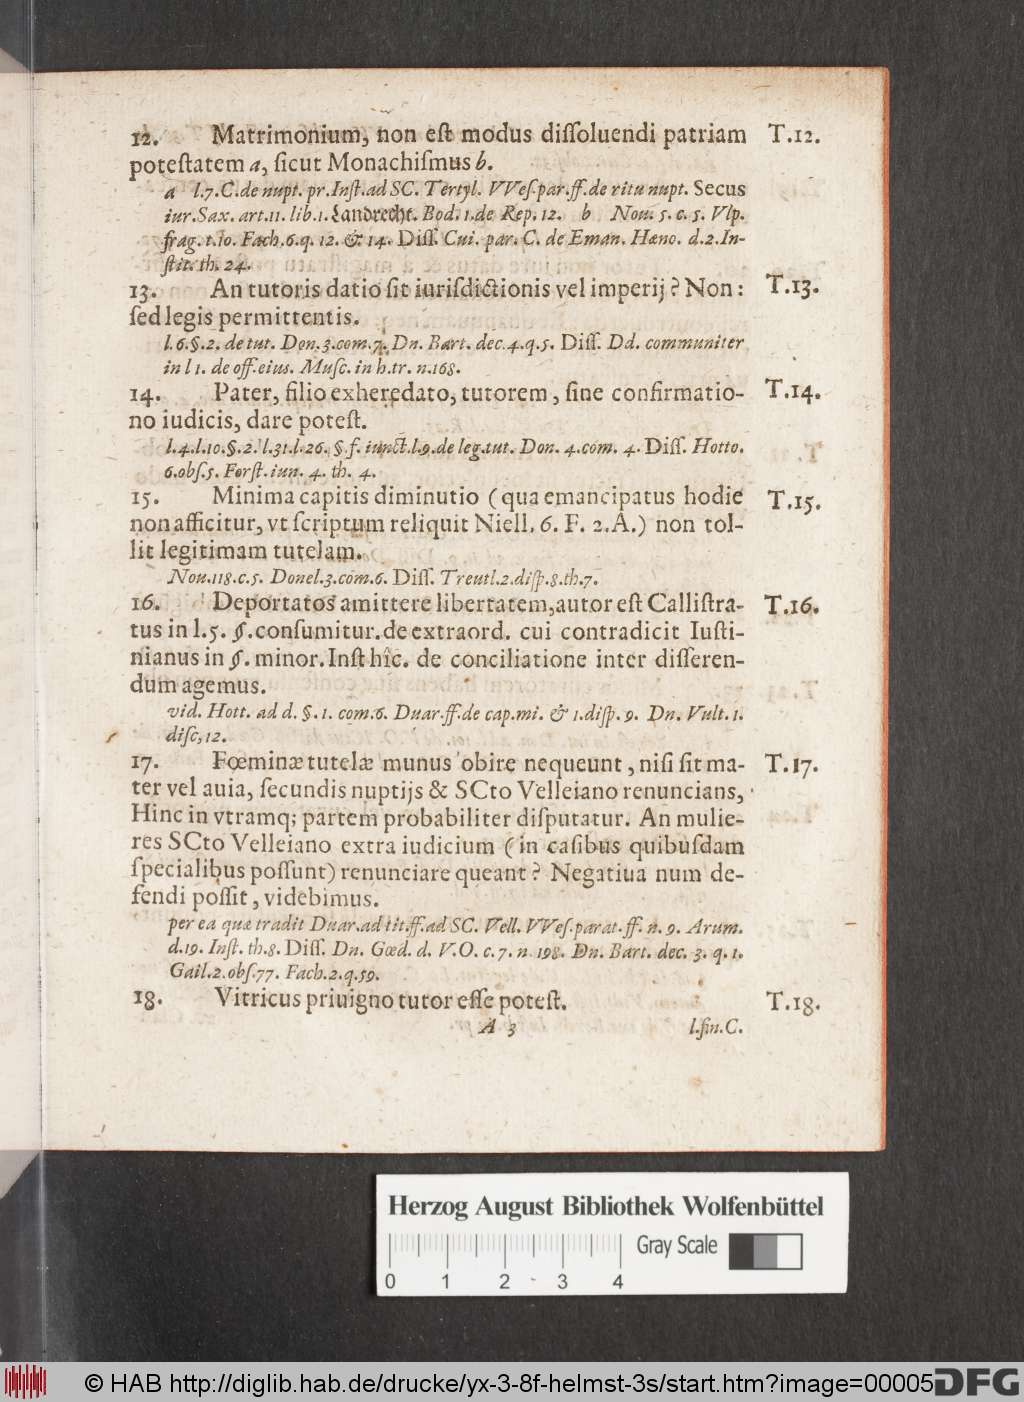 12. Matrimonium, non est modus dissoluendi patriam T.12.
potestatem a, sicut Monachismus b.
a l.7.C.de nupt. pr.Inst.ad SC. Tertyl. VVes.par.ff.de ritu nupt. Secus
iur.Sax. art.11. lib.1. Landrecht. Bod. 1.de Rep. 12. b Nou. 5. c. 5. Vlp.
frag. t.10. Fach.6.q. 12. & 14. Diss. Cui. par. C. de Eman. Hæno. d.2.In-
stit. th. 24.
13. An tutoris datio sit iurisdictionis vel imperij? Non: T.13.
sed legis permittentis.
l.6.§.2. de tut. Don.3.com.7. Dn. Bart. dec.4.q.5. Diss. Dd. communiter
in l 1. de off.eius. Musc. in h.tr. n.168.
14. Pater, filio exheredato, tutorem, sine confirmatio- T.14.
no iudicis, dare potest.
l.4.l.10.§.2. l.31.l.26. §.f. iunct.l.9.de leg.tut. Don. 4.com. 4. Diss. Hotto.
6.obs.5. Forst.iun. 4. th. 4.
15. Minima capitis diminutio (qua emancipatus hodie T.15.
non afficitur, vt scriptum reliquit Niell. 6. F. 2.A.) non tol-
lit legitimam tutelam.
Nou.118.c.5. Donel.3.com.6. Diss. Treutl.2.disp.8.th.7.
16. Deportatos amittere libertatem, autor est Callistra- T.16.
tus in l.5. §.consumitur.de extraord. cui contradicit Iusti-
nianus in §. minor.Inst hîc. de conciliatione inter disseren-
dum agemus.
vid. Hott. ad d. §.1. com.6. Duar.ff.de cap.mi. & 1.disp. 9. Dn. Vult. 1.
disc,12.
17. Fœminæ tutelæ munus obire nequeunt, nisi sit ma- T.17.
ter vel auia, secundis nuptijs & SCto Velleiano renuncians,
Hinc in vtramq; partem probabiliter disputatur. An mulie-
res SCto Velleiano extra iudicium (in casibus quibusdam
specialibus possunt) renunciare queant? Negatiua num de-
fendi possit, videbimus.
per ea quæ tradit Duar.ad tit.ff.ad SC. Vell. VVes.parat.ff. n. 9. Arum.
d.19. Inst. th.8. Diss. Dn. Gœd. d. V.O. c.7. n 198. Dn. Bart. dec. 3. q. 1.
Gail.2.obs.77. Fach.2.q.59.
18. Vitricus priuigno tutor esse potest. T.18.
A 3 l.fin.C.
Herzog August Bibliothek Wolfenbüttel
Gray Scale
0 1 2 3 4
© HAB http://diglib.hab.de/drucke/yx-3-8f-helmst-3s/start.htm?image=00005 DFG